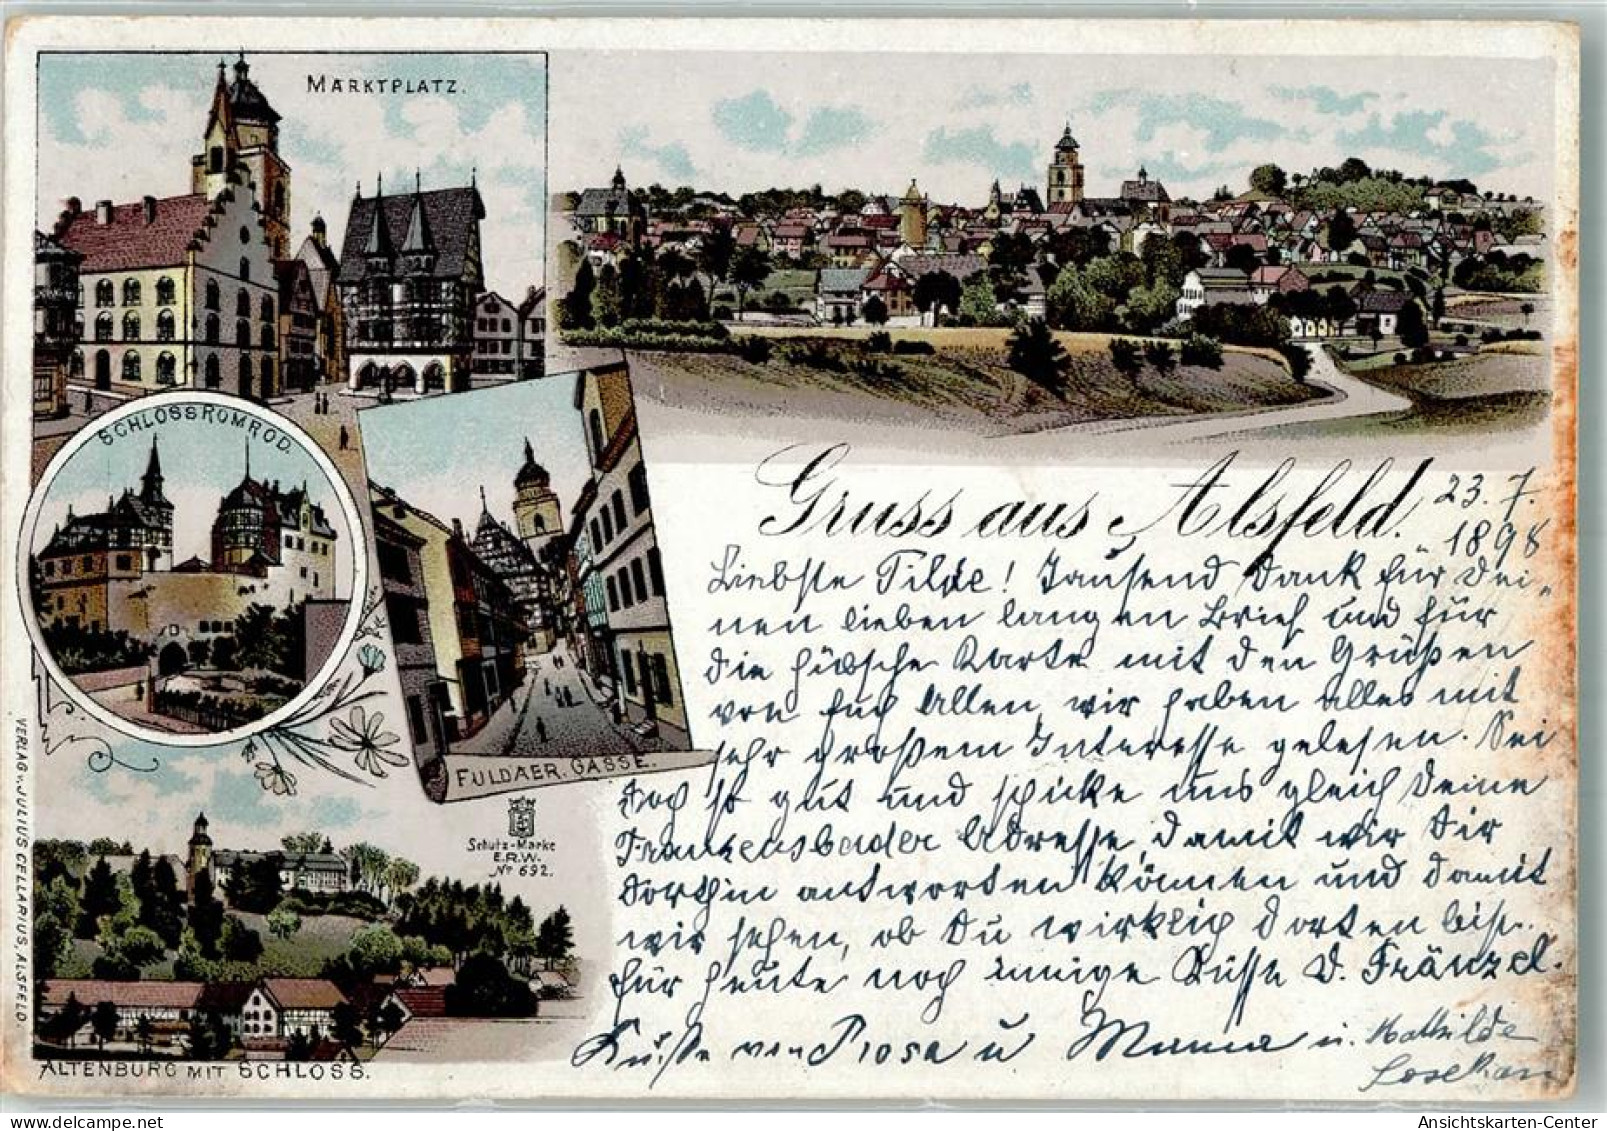 MARKTPLATZ.
SCHLOSS ROMROD.
FULDAER. GASSE.
Schutz-Marke
E.R.W.
No 692.
ALTENBURG MIT SCHLOSS.
VERLAG v. JULIUS CELLARIUS, ALSFELD.
Gruss aus Alsfeld.
23. 7.
1898
Liebste Tilde! Tausend Dank für Dei-
nen lieben langen Brief und für
die hübsche Karte mit den Grüßen
von Euch Allen, wir haben alles mit
sehr großem Interesse gelesen. Sei
doch so gut und schicke uns gleich Deine
Franzensbader Adresse, damit wir Dir
dorthin antworten können und damit
wir sehen, ob Du wirklich dorten bist.
für heute noch innige Küsse D. Fränzel.
Küsse von Rosa u Mama u. Mathilde
Ansichtskarten-Center